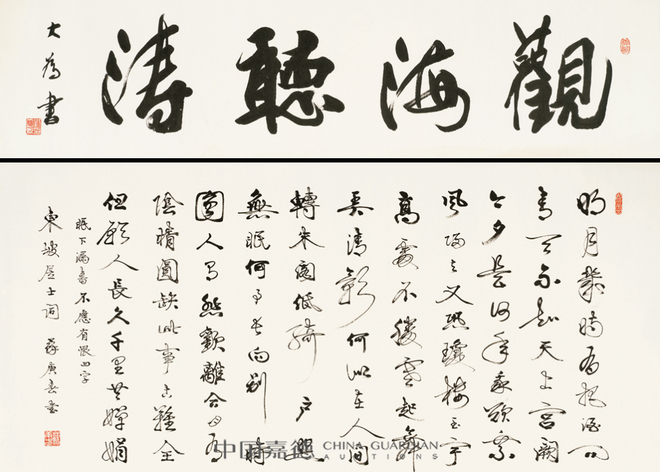 觀海聽濤
大為書
明月幾時有把酒問
青天不知天上宮闕
今夕是何年我欲乘
風歸去又恐瓊樓玉宇
高處不勝寒起舞
弄清影何似在人間
轉朱閣低綺戶照
無眠何事長向別時
圓人有悲歡離合月有
陰晴圓缺此事古難全
但願人長久千里共嬋娟
眠下漏書不應有恨四字
東坡居士詞 蘇 書
中国嘉德 CHINA GUARDIAN
AUCTIONS